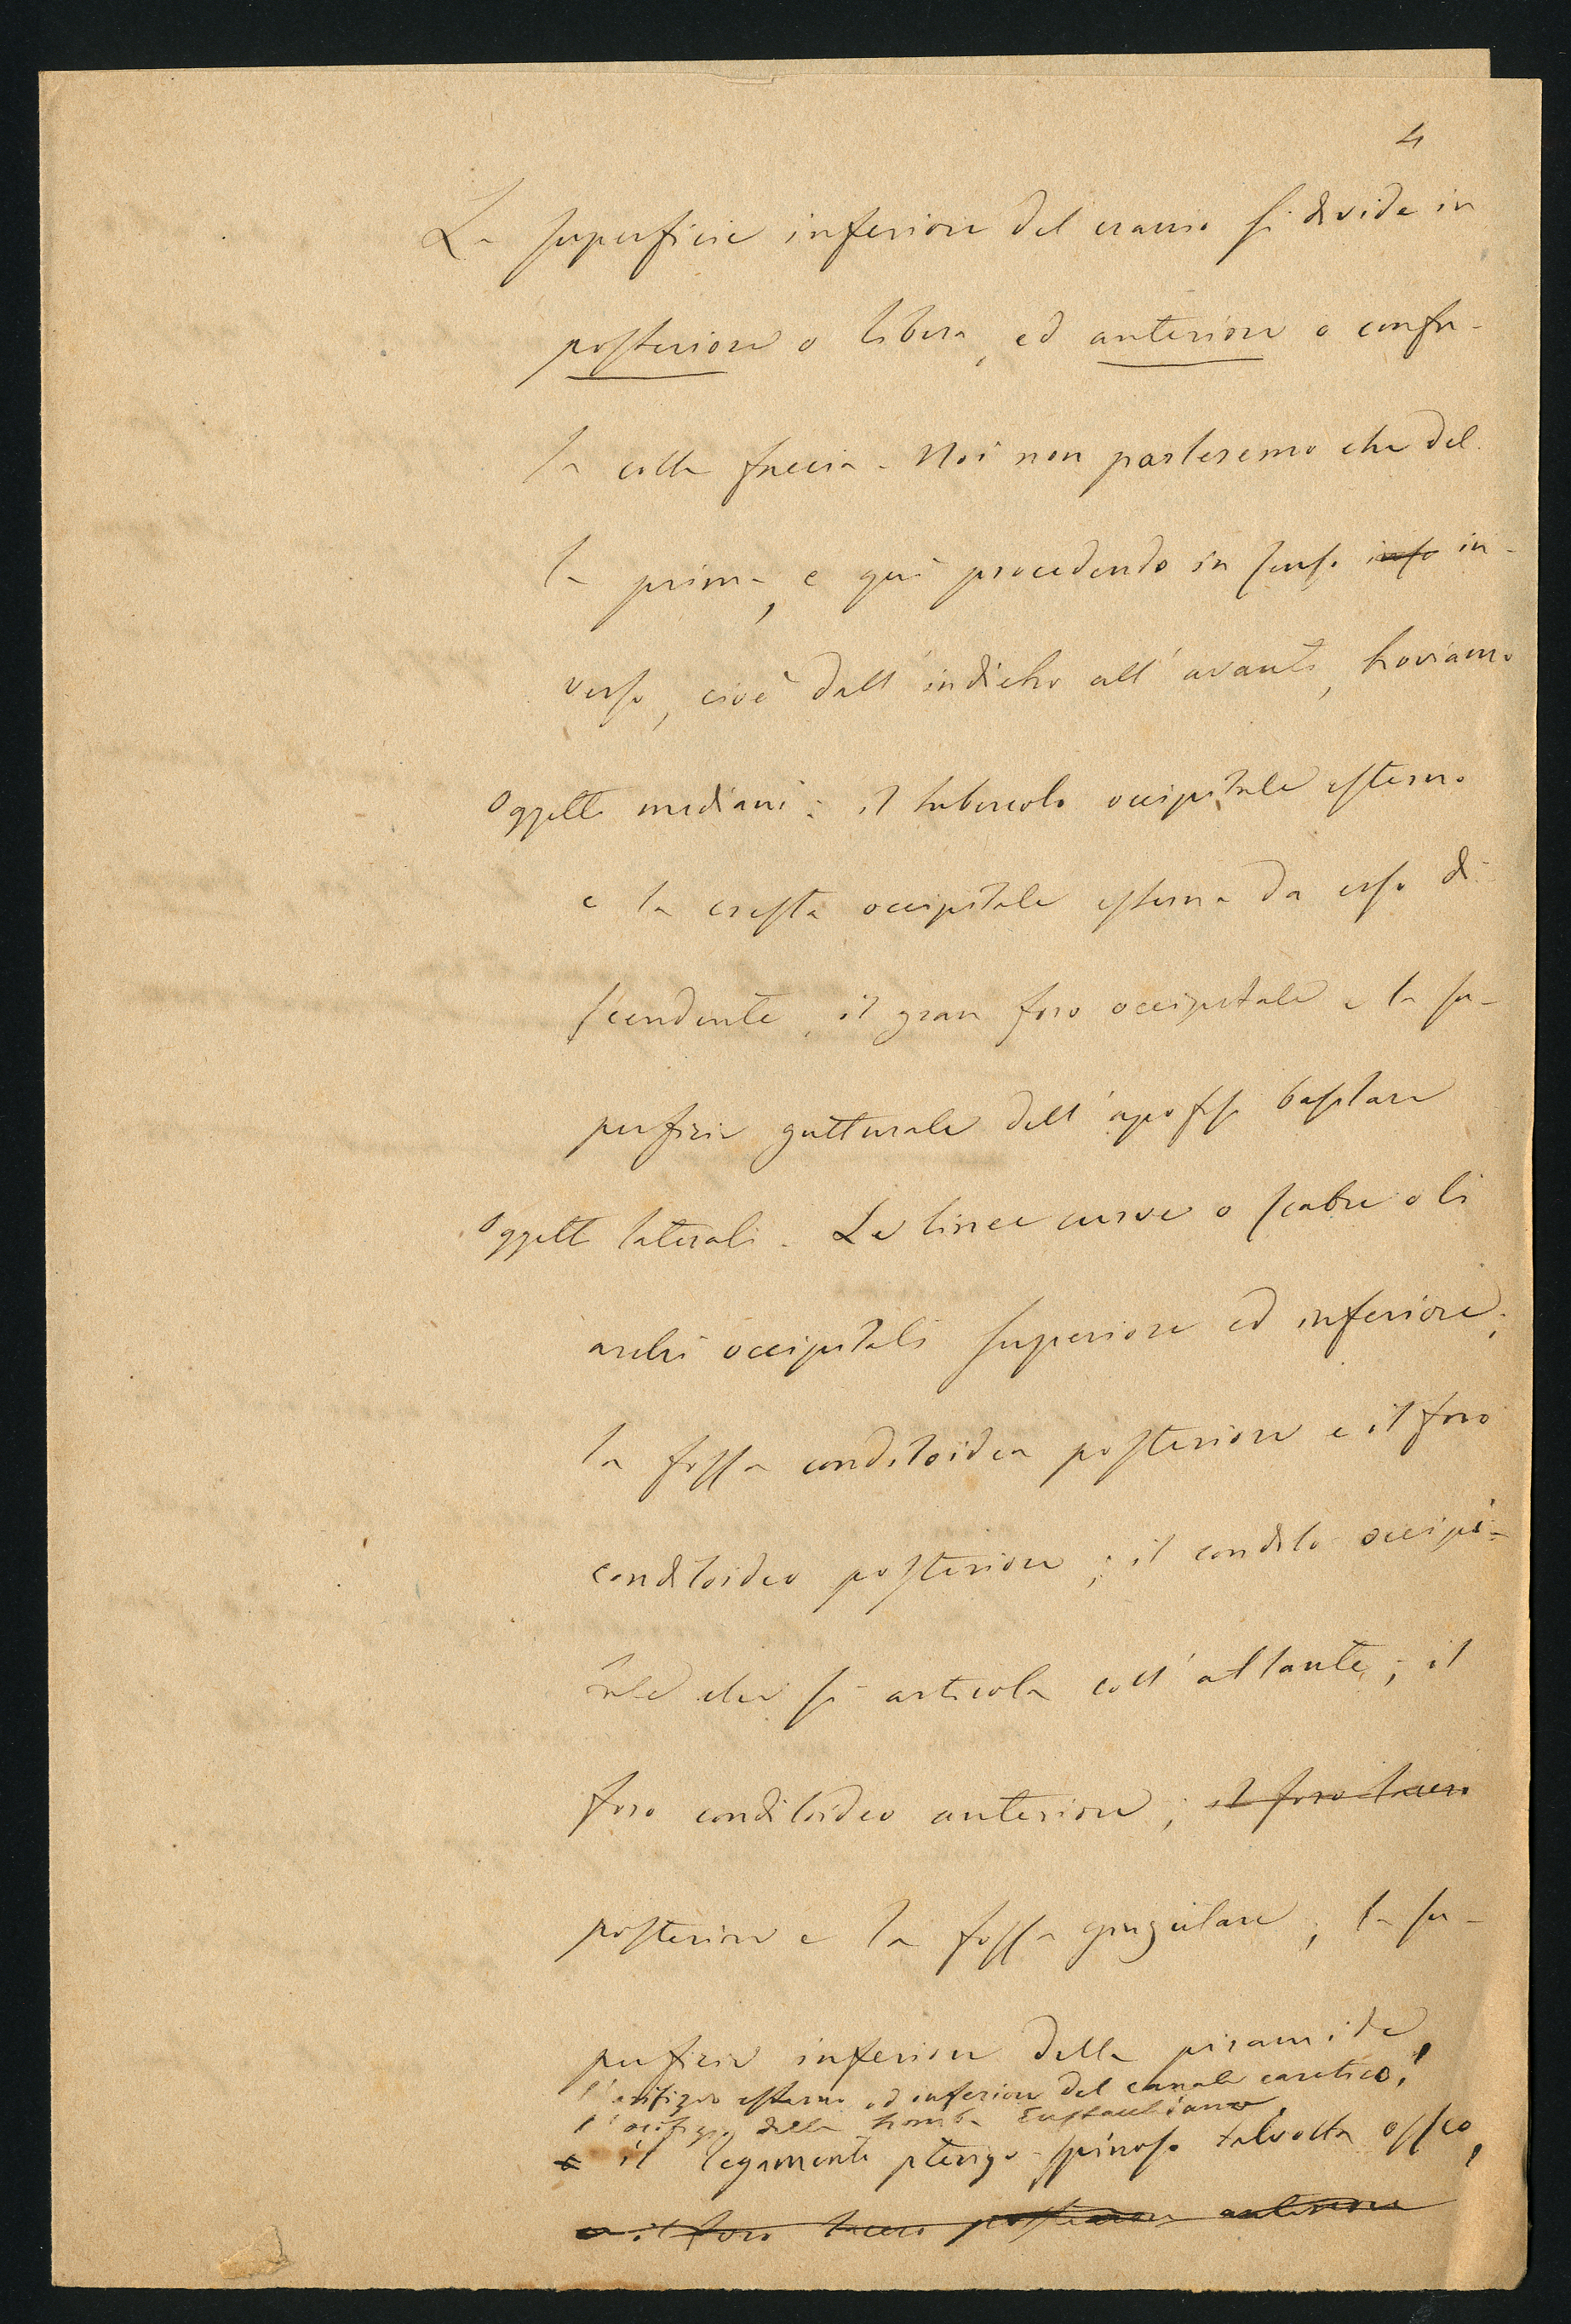 4
La superficie inferiore del cranio si divide in
posteriore o libera, ed anteriore o confu-
sa colla faccia. Noi non parleremo che del
la prima, e qui procedendo in senso info in-
verso, cioè dall'indietro all'avanti, troviamo
Oggetti mediani: il tubercolo occipitale esterno
e la cresta occipitale esterna da esso di-
scendente, il gran foro occipitale e la su-
perficie gutturale dell'apofisi basilare
Oggetti laterali. Le linee curve o scabre o li
archi occipitali superiore ed inferiore;
la fossa condiloidea posteriore e il foro
condiloideo posteriore; il condilo occipi-
tale che si articola coll'atlante; il
foro condiloideo anteriore; il foro lacero
posteriore e la fossa giugulare; la su-
perficie inferiore della piramide,
l'orifizio esterno od inferiore del canale carotico,
l'orifizio della tromba Eustachiana,
e il legamento pterigo-spinoso talvolta osseo,
e il foro lacero posteriore anteriore